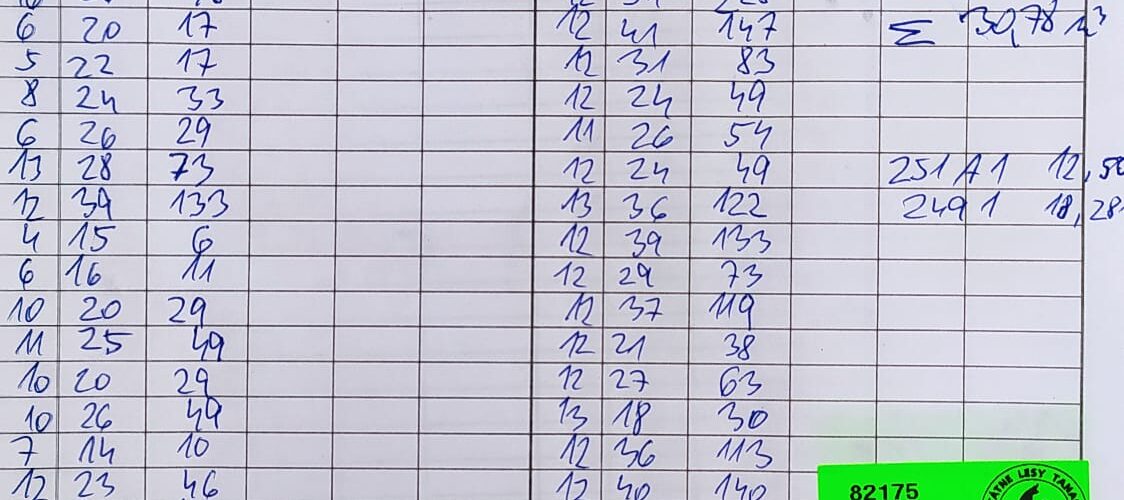 6 20 17 12 41 147 Σ 30,78 m³
5 22 17 12 31 83
8 24 33 12 24 49
6 26 29 11 26 54
13 28 73 12 24 49 251 A 1 12,50
12 39 133 13 36 122 249 1 18,28
4 15 6 12 39 133
6 16 11 12 29 73
10 20 29 12 37 119
11 25 49 12 21 38
10 20 29 12 27 63
10 26 49 13 18 30
7 14 10 12 36 113
12 23 46 12 40 140
82175
LESY